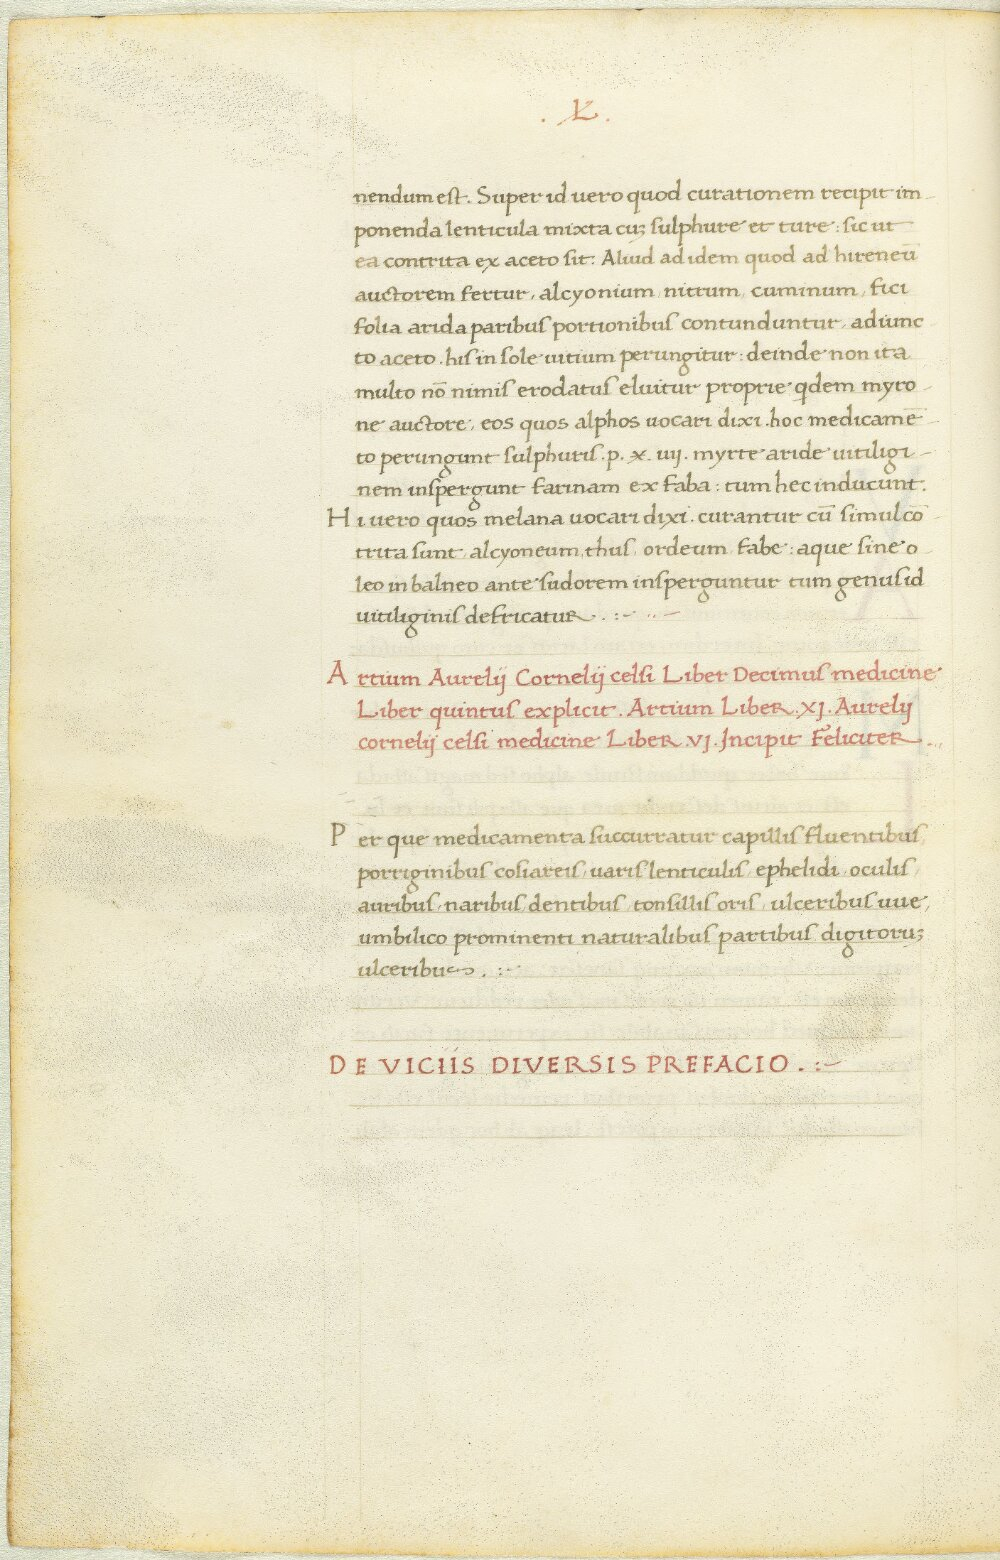 . L .
nendum est. Super id uero quod curationem recipit im
ponenda lenticula mixta cuꝫ sulphure et ture : sic ut
ea contrita ex aceto sit: Aliud ad idem quod ad hireneū
auctorem fertur, alcyonium, nitrum, cuminum, fici
folia arida paribus portionibus contunduntur, adiunc
to aceto . his in sole uitium perungitur : deinde non ita
multo nō nimis erodatus eluitur proprie qdem myro
ne auctore, eos quos alphos uocari dixi . hoc medicamē
to perungunt sulphuris .p. x. iiij. myrte aride uitiligi
nem inspergunt farinam ex faba : tum hec inducunt.
Hi uero quos melana uocari dixi . curantur cū simul cō
trita sunt, alcyoneum, thus, ordeum, fabe : aque sine o
leo in balneo ante sudorem insperguntur tum genus id
uitiliginis defricatur . :-
Artium Aurelij Cornelij celsi Liber Decimus medicine
Liber quintus explicit . Artium Liber .XJ. Aurelij
cornelij celsi medicine Liber .VJ. Jncipit Feliciter . . .
Per que medicamenta succurratur capillis fluentibus,
porriginibus cosiareis, uaris lenticulis, ephelidi, oculis,
auribus, naribus, dentibus, tonsillis oris, ulceribus uue,
umbilico prominenti naturalibus partibus digitoruꝫ
ulceribus . :-
DE VICIIS DIVERSIS PREFACIO . :-